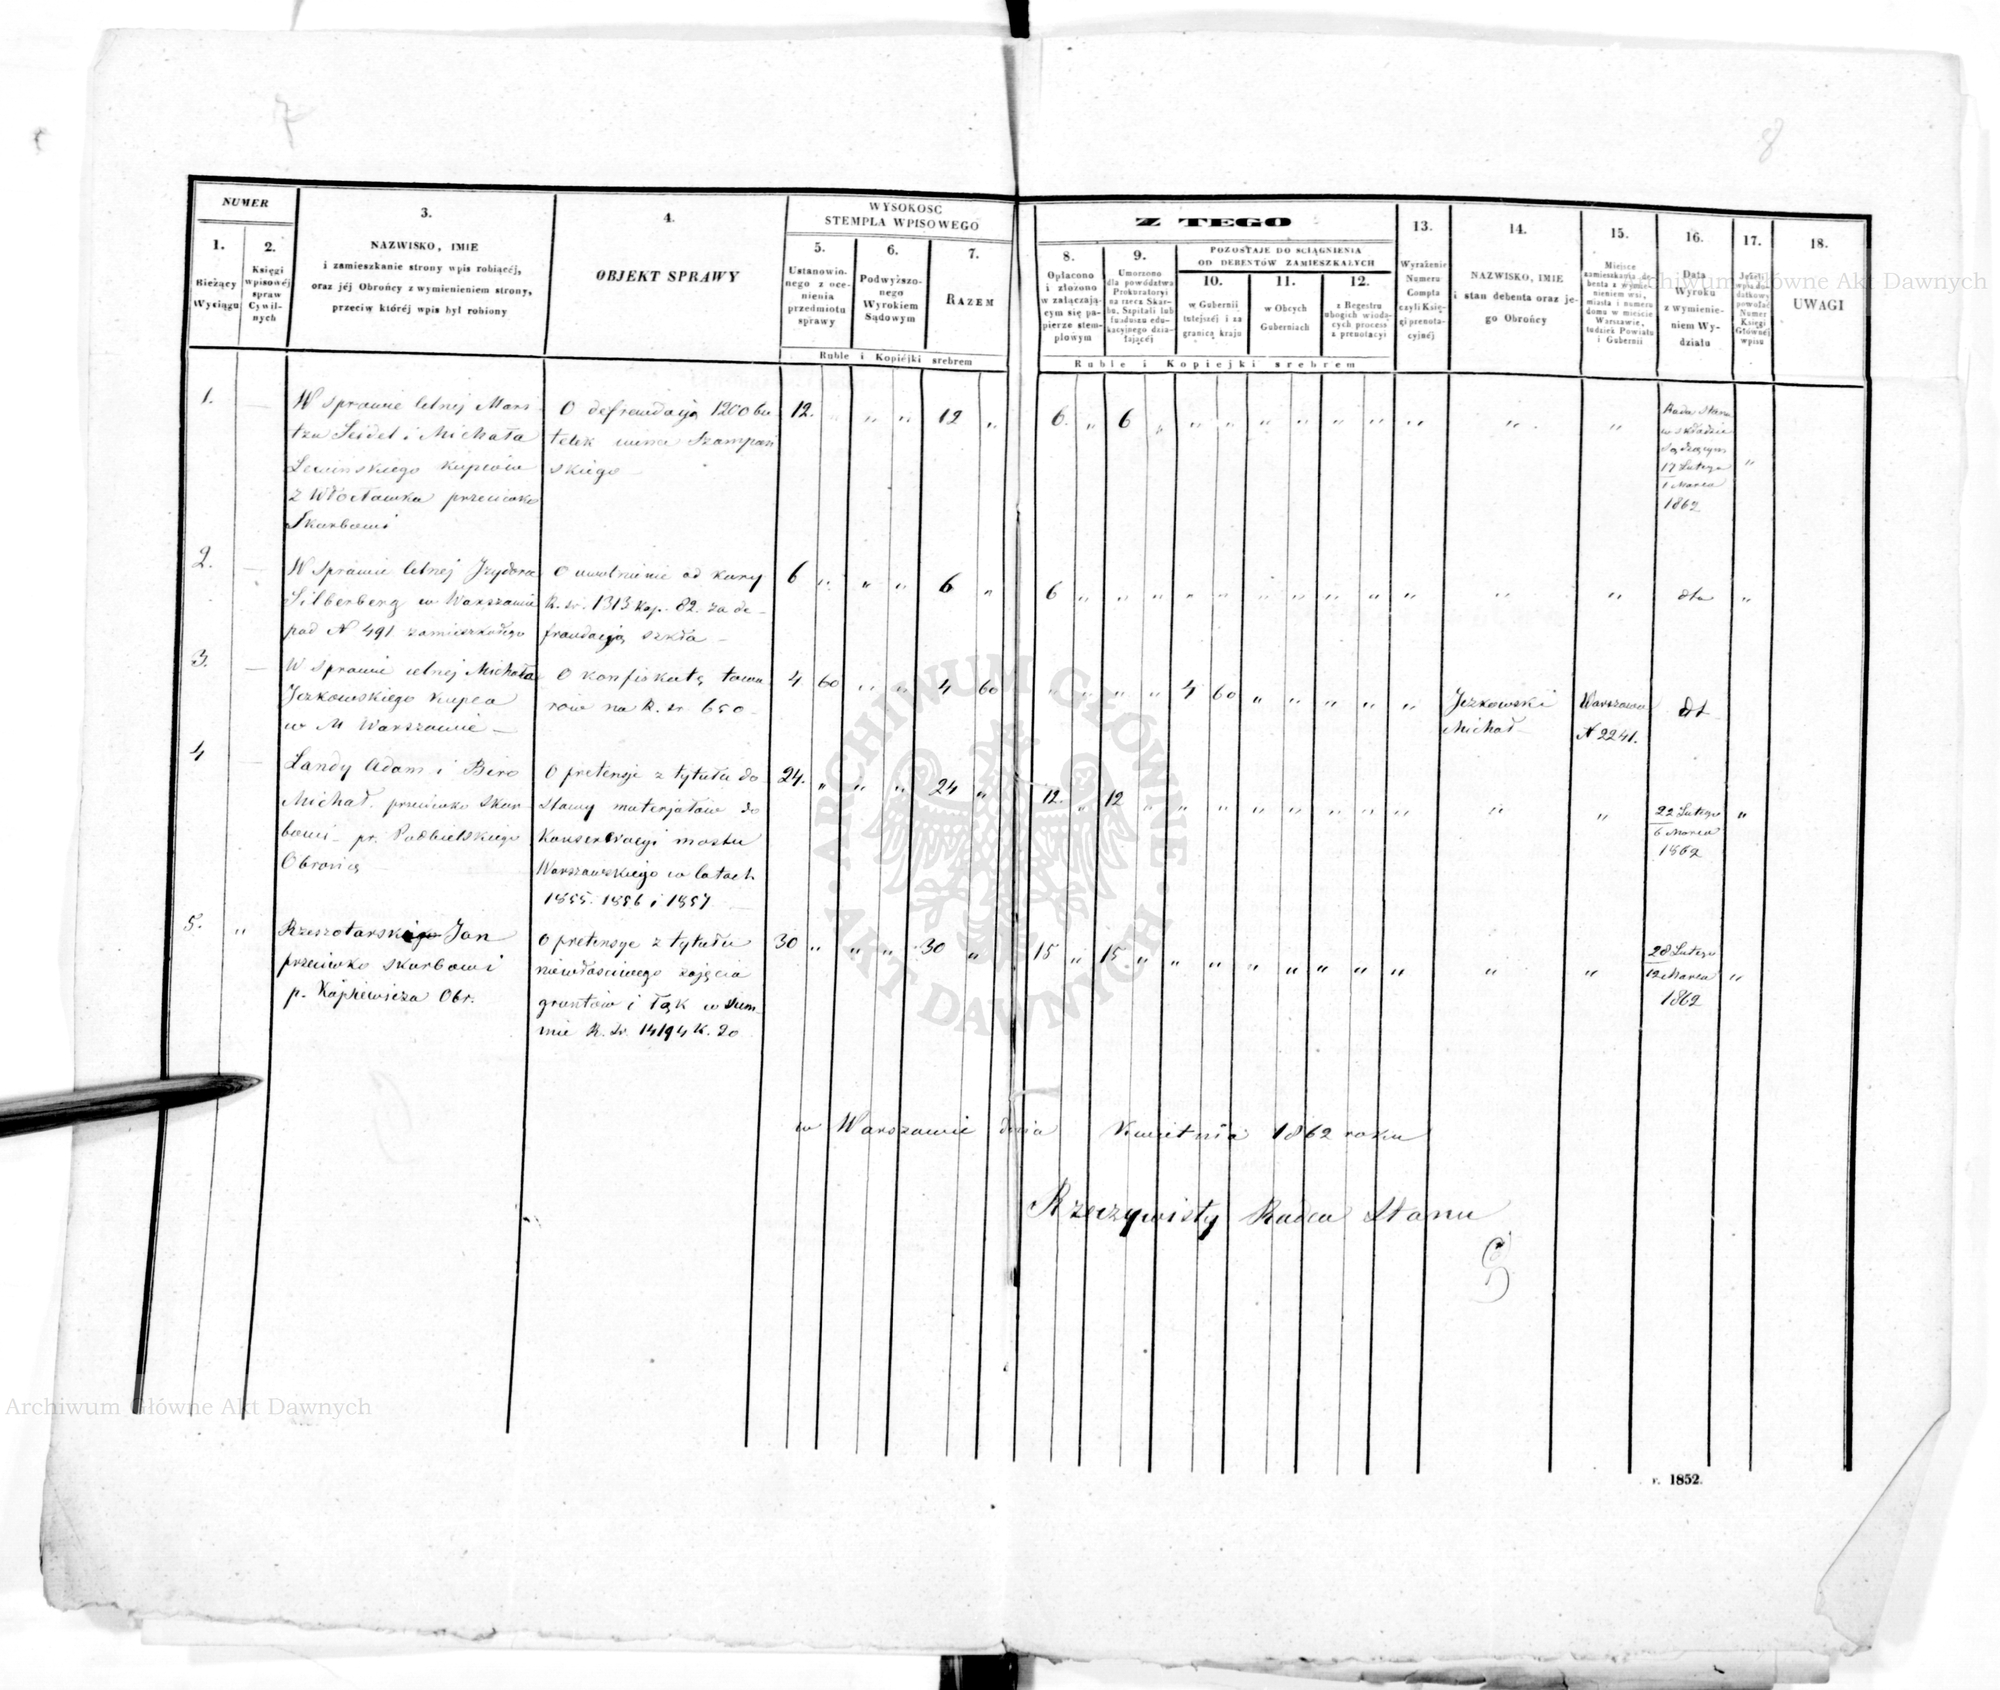 7
8
NUMER
1.
Bieżący
Wyciągu
2.
Księgi
wpisowéj
spraw
Cywil-
nych
3.
NAZWISKO, IMIE
i zamieszkanie strony wpis robiącéj,
oraz jéj Obrońcy z wymienieniem strony,
przeciw któréj wpis był robiony
4.
OBJEKT SPRAWY
WYSOKOŚĆ
STEMPLA WPISOWEGO
5.
Ustanowio-
nego z oce-
nienia
przedmiotu
sprawy
6.
Podwyższo-
nego
Wyrokiem
Sądowym
7.
RAZEM
Ruble i Kopiéjki srebrem
Z TEGO
8.
Opłacono
i złożono
w załączają-
cym się pa-
pierze stem-
plowym
9.
Umorzono
dla powództwa
Prokuratoryi
na rzecz Skar-
bu, Szpitali lub
funduszu edu-
kacyjnego dzia-
łającéj
POZOSTAJE DO ŚCIĄGNIENIA
OD DEBENTÓW ZAMIESZKAŁYCH
10.
w Gubernii
tutejszéj i za
granicą kraju
11.
w Obcych
Guberniach
12.
z Regestru
ubogich wiodą-
cych process
z prenotacyi
Ruble i Kopiejki srebrem
13.
Wyrażenie
Numeru
Compta
czyli Księ-
gi prenota-
cyjnéj
14.
NAZWISKO, IMIE
i stan debenta oraz je-
go Obrońcy
15.
Miejsce
zamieszkania de-
benta z wymie-
nieniem wsi,
miasta i numeru
domu w mieście
Warszawie,
tudzież Powiatu
i Gubernii
16.
Data
Wyroku
z wymienie-
niem Wy-
działu
17.
Jeżeli
wpis do-
datkowy
powołać
Numer
Księgi
Głównéj
wpisu
18.
UWAGI
1.
W sprawie celnej Mary
tza Seidel i Michała
Lewińskiego kupców
z Włocławka przeciwko
Skarbowi
O defraudacją 1200 bu
telek wina Szampań
skiego
12. " " " 12 " 6. " 6 " " " " " " " " " "
Rada Stanu
w składzie
Sądzącym
17 Lutego
1 Marca
1862
"
2.
W sprawie celnej Izydora
Silberberg w Warszawie
pod N 491 zamieszkałego
O uwolnienie od kary
R. sr. 1313 kop. 82. za de-
fraudacją szkła
6 " " " 6 " 6 " " " " " " " " " " " "
dto
"
3.
W sprawie celnej Michała
Jezkowskiego kupca
w M Warszawie
O konfiskatę towa
rów na R. sr 650
4 60 " " 4 60 " " " " 4 60 " " " " "
Jezkowski
Michał
Warszawa
N 2241.
dt
4
Landy Adam i Biro
Michał. przeciwko Skar-
bowi - pr. Podbielskiego
Obrońcę
O pretensje z tytułu do
stawy materjałów do
Konserwacyi mostu
Warszawskiego w latach
1855. 1856 i 1857
24. " " " 24 " 12. " 12 " " " " " " " " " "
22 Lutego
6 Marca
1862
"
5. "
Rzeszotarski Jan
przeciwko Skarbowi
p. Kapliewicza Obr.
O pretensye z tytułu
niewłaściwego zajęcia
gruntów i łąk w sum
mie R. sr. 14194 k. 20
30 " " " 30 " 15 " 15 " " " " " " " " " "
28 Lutego
12 Marca
1862
"
w Warszawie dnia Kwietnia 1862 roku
Rzeczywisty Radca Stanu
r. 1852.
ARCHIWUM GŁÓWNE
AKT DAWNYCH
Archiwum Główne Akt Dawnych
Archiwum Główne Akt Dawnych